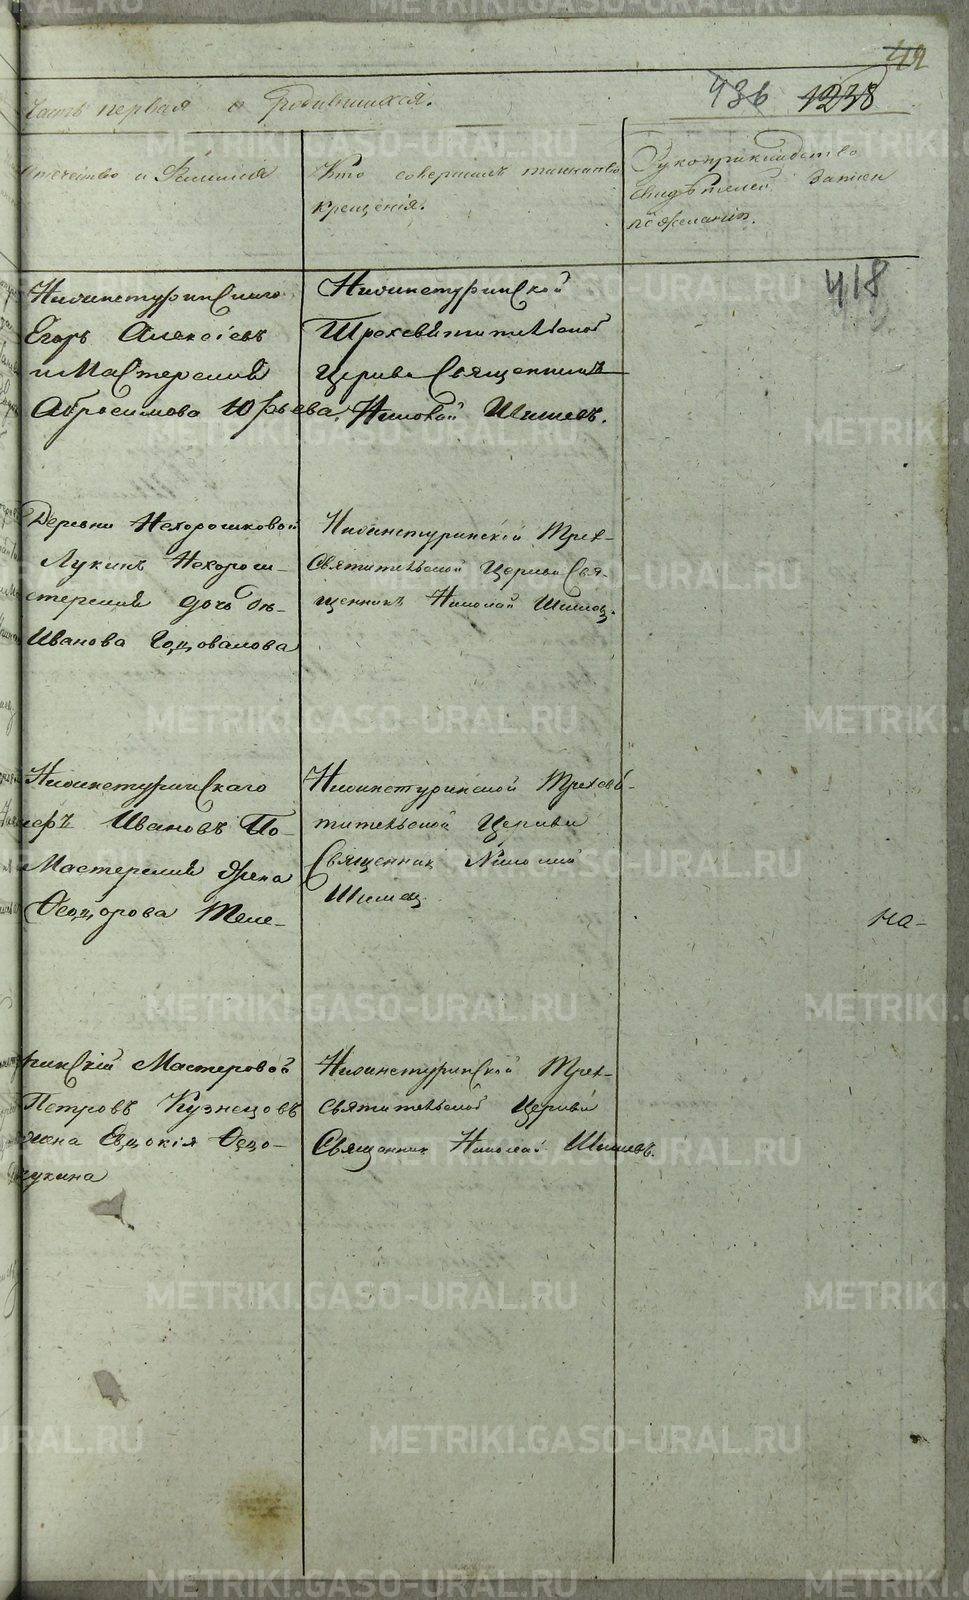 412
436 1238
Часть первая о родившихся.
Отечество и Фамилия
Кто совершилъ таинство
крещенія.
Рукоприкладство
свидѣтелей записи
по желанію.
418
Нижнетуринскаго
Егоръ Алексѣевъ
Мастерской
Абросимова Юрьева.
Нижнетуринской
Трехсвятительской
Церкви Священникъ
Николай Шишевъ.
Деревни Нехорошковой
Лукинъ Нехорош-
стерской дочь
Ивановa
Нижнетуринской Трех-
святительской Церкви Свя-
щенникъ Николай
Нижнетуринскаго
Ивановъ По-
Мастерской жена
Ѳеодорова Теле-
Нижнетуринской Трехсвя-
тительской Церкви
Священник Николай
на-
ринскій Мастеровой
Петровъ Кузнецовъ
жена Евдокія Ѳедо-
кина
Нижнетуринской Трех-
святительской Церкви
Священник Николай Шишевъ.
METRIKI.GASO-URAL.RU